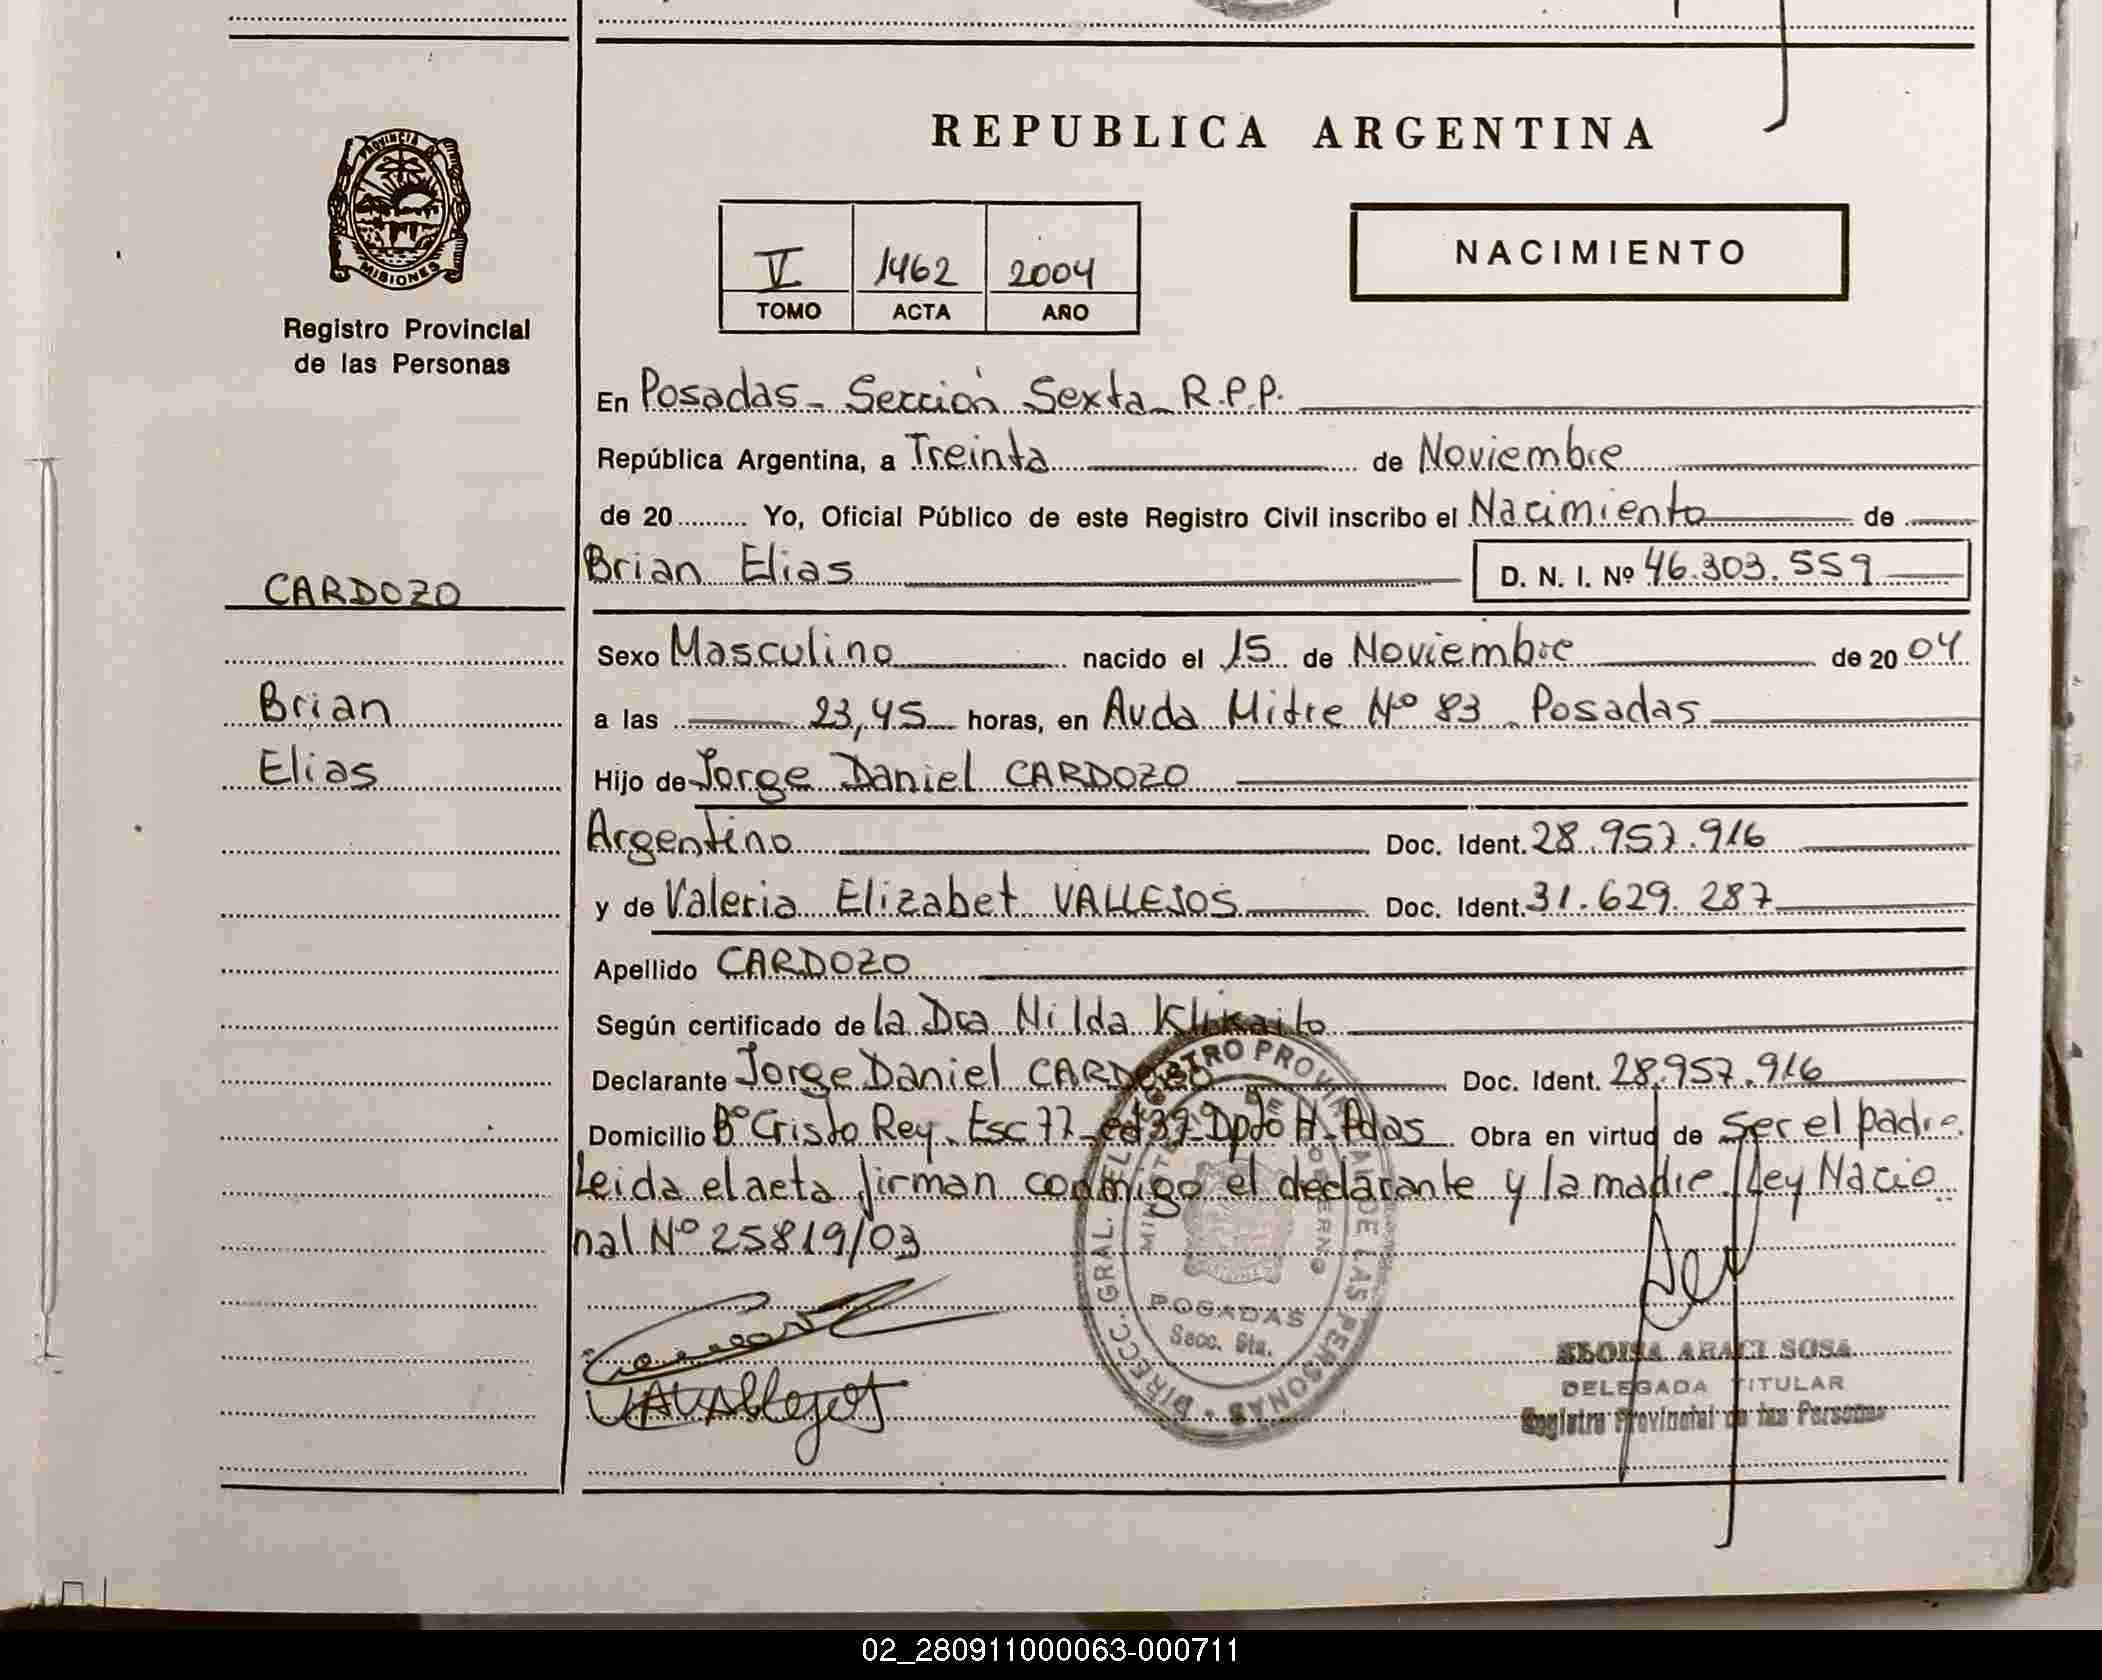 REPUBLICA ARGENTINA
PROVINCIA DE MISIONES
Registro Provincial
de las Personas
V 1462 2004
TOMO ACTA AÑO
NACIMIENTO
En Posadas - Sección Sexta - R.P.P.
República Argentina, a Treinta de Noviembre
de 20 Yo, Oficial Público de este Registro Civil inscribo el Nacimiento de
CARDOZO
Brian Elias D. N. I. Nº 46.303.559
Sexo Masculino nacido el 15 de Noviembre de 2004
Brian
a las 23,45 horas, en Avda Mitre Nº 83 Posadas
Elias
Hijo de Jorge Daniel CARDOZO
Argentino Doc. Ident. 28.957.916
y de Valeria Elizabet VALLEJOS Doc. Ident. 31.629.287
Apellido CARDOZO
Según certificado de la Dra Nilda
Declarante Jorge Daniel CARDOZO Doc. Ident. 28.957.916
Domicilio Bº Cristo Rey. Esc 77 - ed 37 - Dpto H - Pdas Obra en virtud de Ser el padre.
Leida el acta firman conmigo el declarante y la madre. Ley Nacio
nal Nº 25819/03
DIRECC. GRAL. DEL REGISTRO PROVINCIAL DE LAS PERSONAS
MINISTERIO DE GOBIERNO
POSADAS
Secc. 6ta.
VAVallejos
ELOISA ARACI SOSA
DELEGADA TITULAR
Registro Provincial de las Personas
02_280911000063-000711